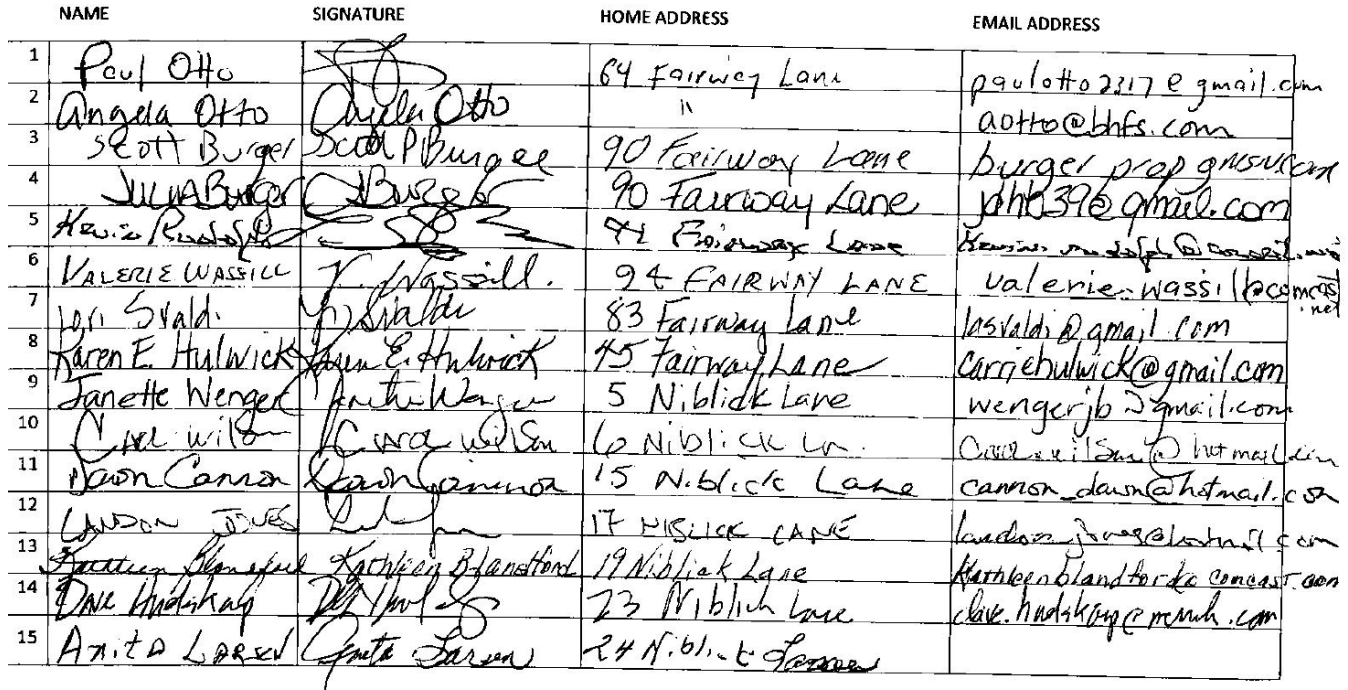 NAME SIGNATURE HOME ADDRESS EMAIL ADDRESS
1 Paul Otto 64 Fairway Lane paulotto2317@gmail.com
2 Angela Otto Angela Otto " aotto@bhfs.com
3 Scott Burger Scott P Burger 90 Fairway Lane burger prop @msn.com
4 Julia Burger JBurger 90 Fairway Lane
5 Kevin Rudolph Fairway Lane
6 VALERIE WASSILL V. Wassill. 94 FAIRWAY LANE valerie.wassill@comcast.net
7 Lori Svaldi Svaldi 83 Fairway Lane lasvaldi@gmail.com
8 Karen E. Hulwick Karen E. Hulwick 45 Fairway Lane carriehulwick@gmail.com
9 Janette Wenger Janette Wenger 5 Niblick Lane wengerjb@gmail.com
10 Carol Wilson Carol Wilson 6 Niblick Ln. @hotmail.com
11 Dawn Cannon Dawn Cannon 15 Niblick Lane cannon_dawn@hotmail.com
12 LANDON JONES 17 NIBLICK LANE
13 Kathleen Blandford Kathleen Blandford 19 Niblick Lane
14 Dave Hudskay 23 Niblick Lane
15 Anita LARSEN Anita Larsen 24 Niblick